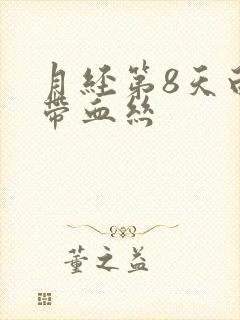 月经第8天白
带血丝
董之益